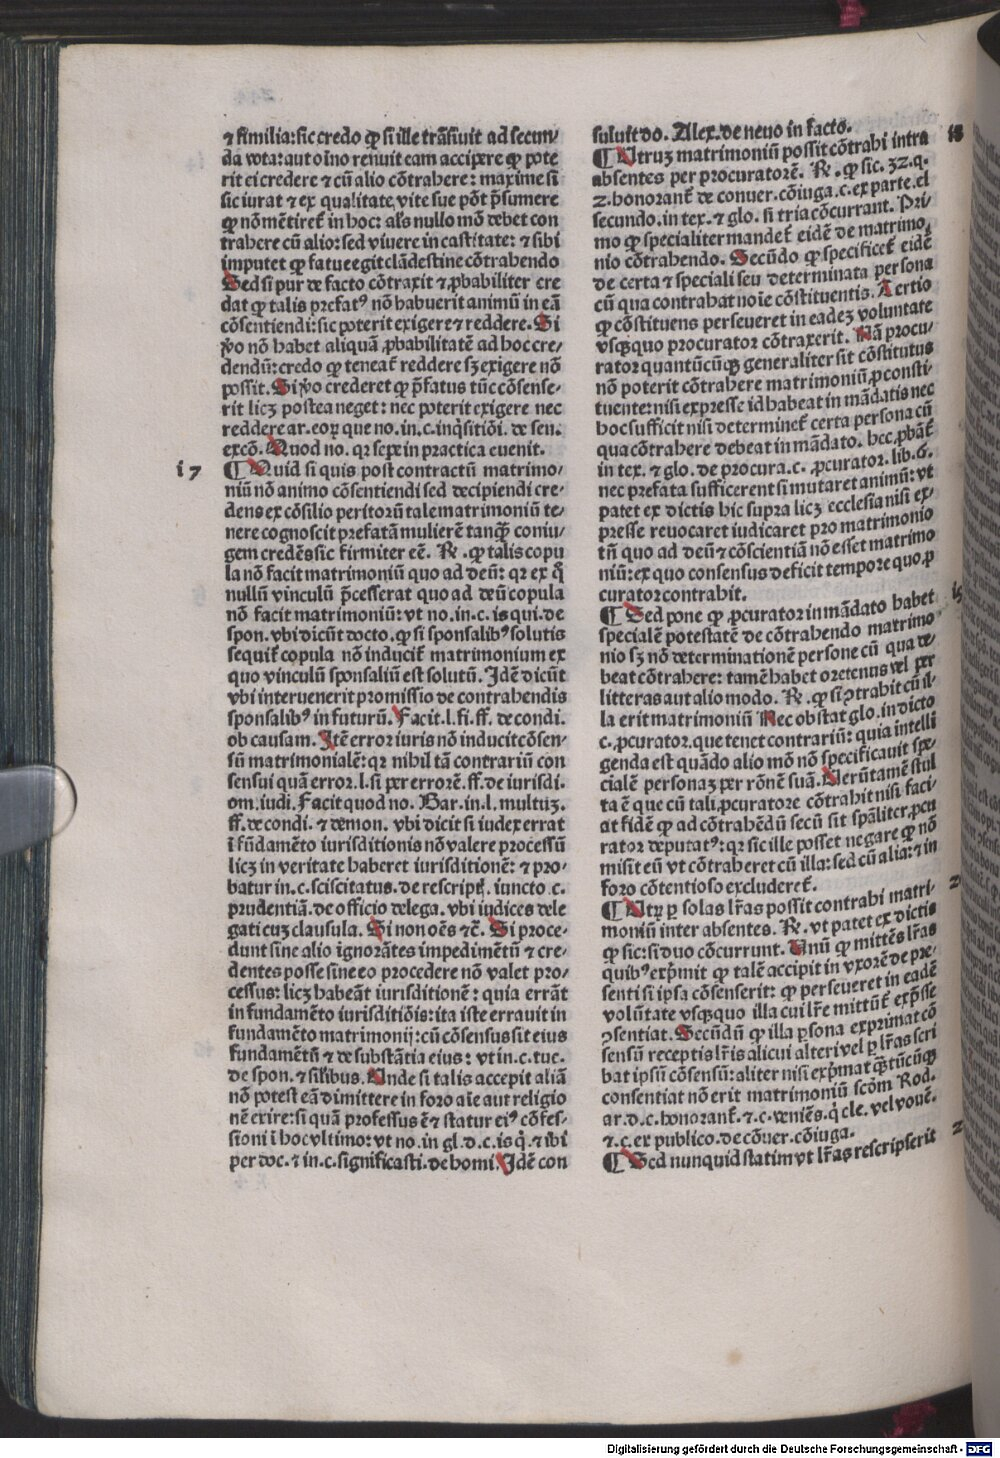 ⁊ similia: sic credo ꝙ si ille trāsiuit ad secun/
da vota: aut oīno renuit eam accipere ꝙ pote
rit ei credere ⁊ cū alio cōtrahere: maxime si
sic iurat ⁊ ex qualitate vite sue pōt p̄sumere
ꝙ nō mētiret᷑ in hoc: als nullo mō debet con
trahere cū alio: sed viuere in castitate: ⁊ sibi
imputet ꝙ fatue egit clādestine cōtrahendo
Sed si pur de facto cōtraxit ⁊ ꝓbabiliter cre
dat ꝙ talis prefatꝰ nō habuerit animū in eā
cōsentiendi: sic poterit exigere ⁊ reddere. Si
ṽo nō habet aliquā ꝓbabilitatē ad hoc cre/
dendū: credo ꝙ teneat᷑ reddere sꝫ exigere nō
possit. Si ṽo crederet ꝙ p̄fatus tūc cōsense/
rit licꝫ postea neget: nec poterit exigere nec
reddere ar. eoꝝ que no. in. c. inq̄sitiōi. de sen.
excō. Quod no. qꝛ sepe in practica euenit.
i7 ¶ Quid si quis post contractū matrimo/
niū nō animo cōsentiendi sed decipiendi cre/
dens ex cōsilio peritorū tale matrimoniū te/
nere cognoscit prefatā mulierē tanꝙ̄ coniu/
gem credēs sic firmiter eē. R̄. ꝙ talis copu
la nō facit matrimoniū quo ad deū: qꝛ ex q̄
nullū vinculū p̄cesserat quo ad deū copula
nō facit matrimoniū: vt no. in. c. is qui. de
spon. vbi dicūt docto. ꝙ si sponsalibꝰ solutis
sequit᷑ copula nō inducit᷑ matrimonium ex
quo vinculū sponsaliū est solutū. Idē dicūt
vbi interuenerit promissio de contrahendis
sponsalibꝰ in futurū. Facit. l. fi. ff. de condi.
ob causam. Itē error iuris nō inducit cōsen/
sū matrimonialē: qꝛ nihil tā contrariū con
sensui quā error. l. si per errorē. ff. de iurisdi.
om. iudi. Facit quod no. Bar. in. l. multuꝫ.
ff. de condi. ⁊ demon. vbi dicit si iudex errat
ī fūdamēto iurisditionis nō valere processū
licꝫ in veritate haberet iurisditionē: ⁊ pro/
batur in. c. sciscitatus. de rescript̄. iuncto. c.
prudentiā. de officio delega. vbi iudices dele
gati cuꝫ clausula. Si non oēs ⁊c̄. Si proce/
dunt sine alio ignorātes impedimētū ⁊ cre/
dentes posse sine eo procedere nō valet pro/
cessus: licꝫ habeāt iurisditionē: quia errāt
in fundamēto iurisditiōis: ita iste errauit in
fundamēto matrimonij: cū cōsensus sit eius
fundamētū ⁊ de substātia eius: vt in. c. tuc.
de spon. ⁊ silibus. Unde si talis accepit aliā
nō potest eā dimittere in foro aīe aut religio
nē exire: si quā professus ē ⁊ statur eiꝰ cōfes/
sioni ī hoc vltimo: vt no. in gl. d. c. is q̄. ⁊ ibi
per doc. ⁊ in. c. significasti. de homi. Idē con
suluit do. Alex. de neuo in facto.
¶ Utruꝫ matrimoniū possit cōtrahi intra i8
absentes per procuratorē. R̄. ꝙ sic. 32. q.
2. honorant̄. de conuer. cōiuga. c. ex parte. el
secundo. in tex. ⁊ glo. si tria cōcurrant. Pri/
mo ꝙ specialiter mandet᷑ eidē de matrimo/
nio cōtrahendo. Secūdo ꝙ specificet᷑ eidē
de certa ⁊ speciali seu determinata persona
cū qua contrahat noīe cōstituentis. Tertio
ꝙ cōstituens perseueret in eadeꝫ voluntate
vsquequo procurator cōtraxerit. Nā procu/
rator quantūcūqꝫ generaliter sit cōstitutus
nō poterit cōtrahere matrimoniū ꝓ consti/
tuente: nisi expresse id habeat in mādatis nec
hoc sufficit nisi determinet᷑ certa persona cū
qua cōtrahere debeat in mādato. hec ꝓbāt᷑
in tex. ⁊ glo. de procura. c. ꝓcurator. lib. 6.
nec prefata sufficerent si mutaret animū: vt
patet ex dictis hic supra licꝫ ecclesia nisi ex/
presse reuocaret iudicaret pro matrimonio
tn̄ quo ad deū ⁊ cōscientiā nō esset matrimo
niū: ex quo consensus deficit tempore quo ꝓ
curator contrahit.
¶ Sed pone ꝙ ꝓcurator in mādato habet
specialē potestatē de cōtrahendo matrimo
nio sꝫ nō determinationē persone cū qua de/
beat cōtrahere: tamē habet oretenus vel per
litteras aut alio modo. R̄. ꝙ si ꝯtrahit cū il/
la erit matrimoniū Nec obstat glo. in dicto
c. ꝓcurator. que tenet contrariū: quia intelli
genda est quādo alio mō nō specificauit spe/
cialē personaꝫ per rōnē suā. Uerūtamē stul
ta ē que cū tali ꝓcuratore cōtrahit nisi faci/
at fidē ꝙ ad cōtrahēdū secū sit spāliter ꝓcu
rator deputatꝰ: qꝛ sic ille posset negare ꝙ nō
misit eū vt cōtraheret cū illa: sed cū alia: ⁊ in
foro cōtentioso excluderet᷑.
¶ Utꝝ ꝑ solas lr̄as possit contrahi matri/
moniū inter absentes. R̄. vt patet ex dictis
ꝙ sic: si duo cōcurrunt. Unū ꝙ mittēs lr̄as
quibꝰ exp̄mit ꝙ talē accipit in vxorē de pre/
senti si ipsa cōsenserit: ꝙ perseueret in eadē
volūtate vsquequo illa cui lr̄e mittūt᷑ exp̄sse
ꝯsentiat. Secūdū ꝙ illa ꝑsona exprimat cō
sensū receptis lr̄is alicui alteri vel ꝑ lr̄as scri
bat ipsū cōsensū: aliter nisi exp̄mat q̄ꝫtūcūqꝫ
consentiat nō erit matrimoniū scōm Rod.
ar. d. c. honorant̄. ⁊. c. veniēs. q̄ cle. vel vouē.
⁊. c. ex publico. de cōuer. cōiuga.
¶ Sed nunquid statim vt lr̄as rescripserit
Digitalisierung gefördert durch die Deutsche Forschungsgemeinschaft - DFG